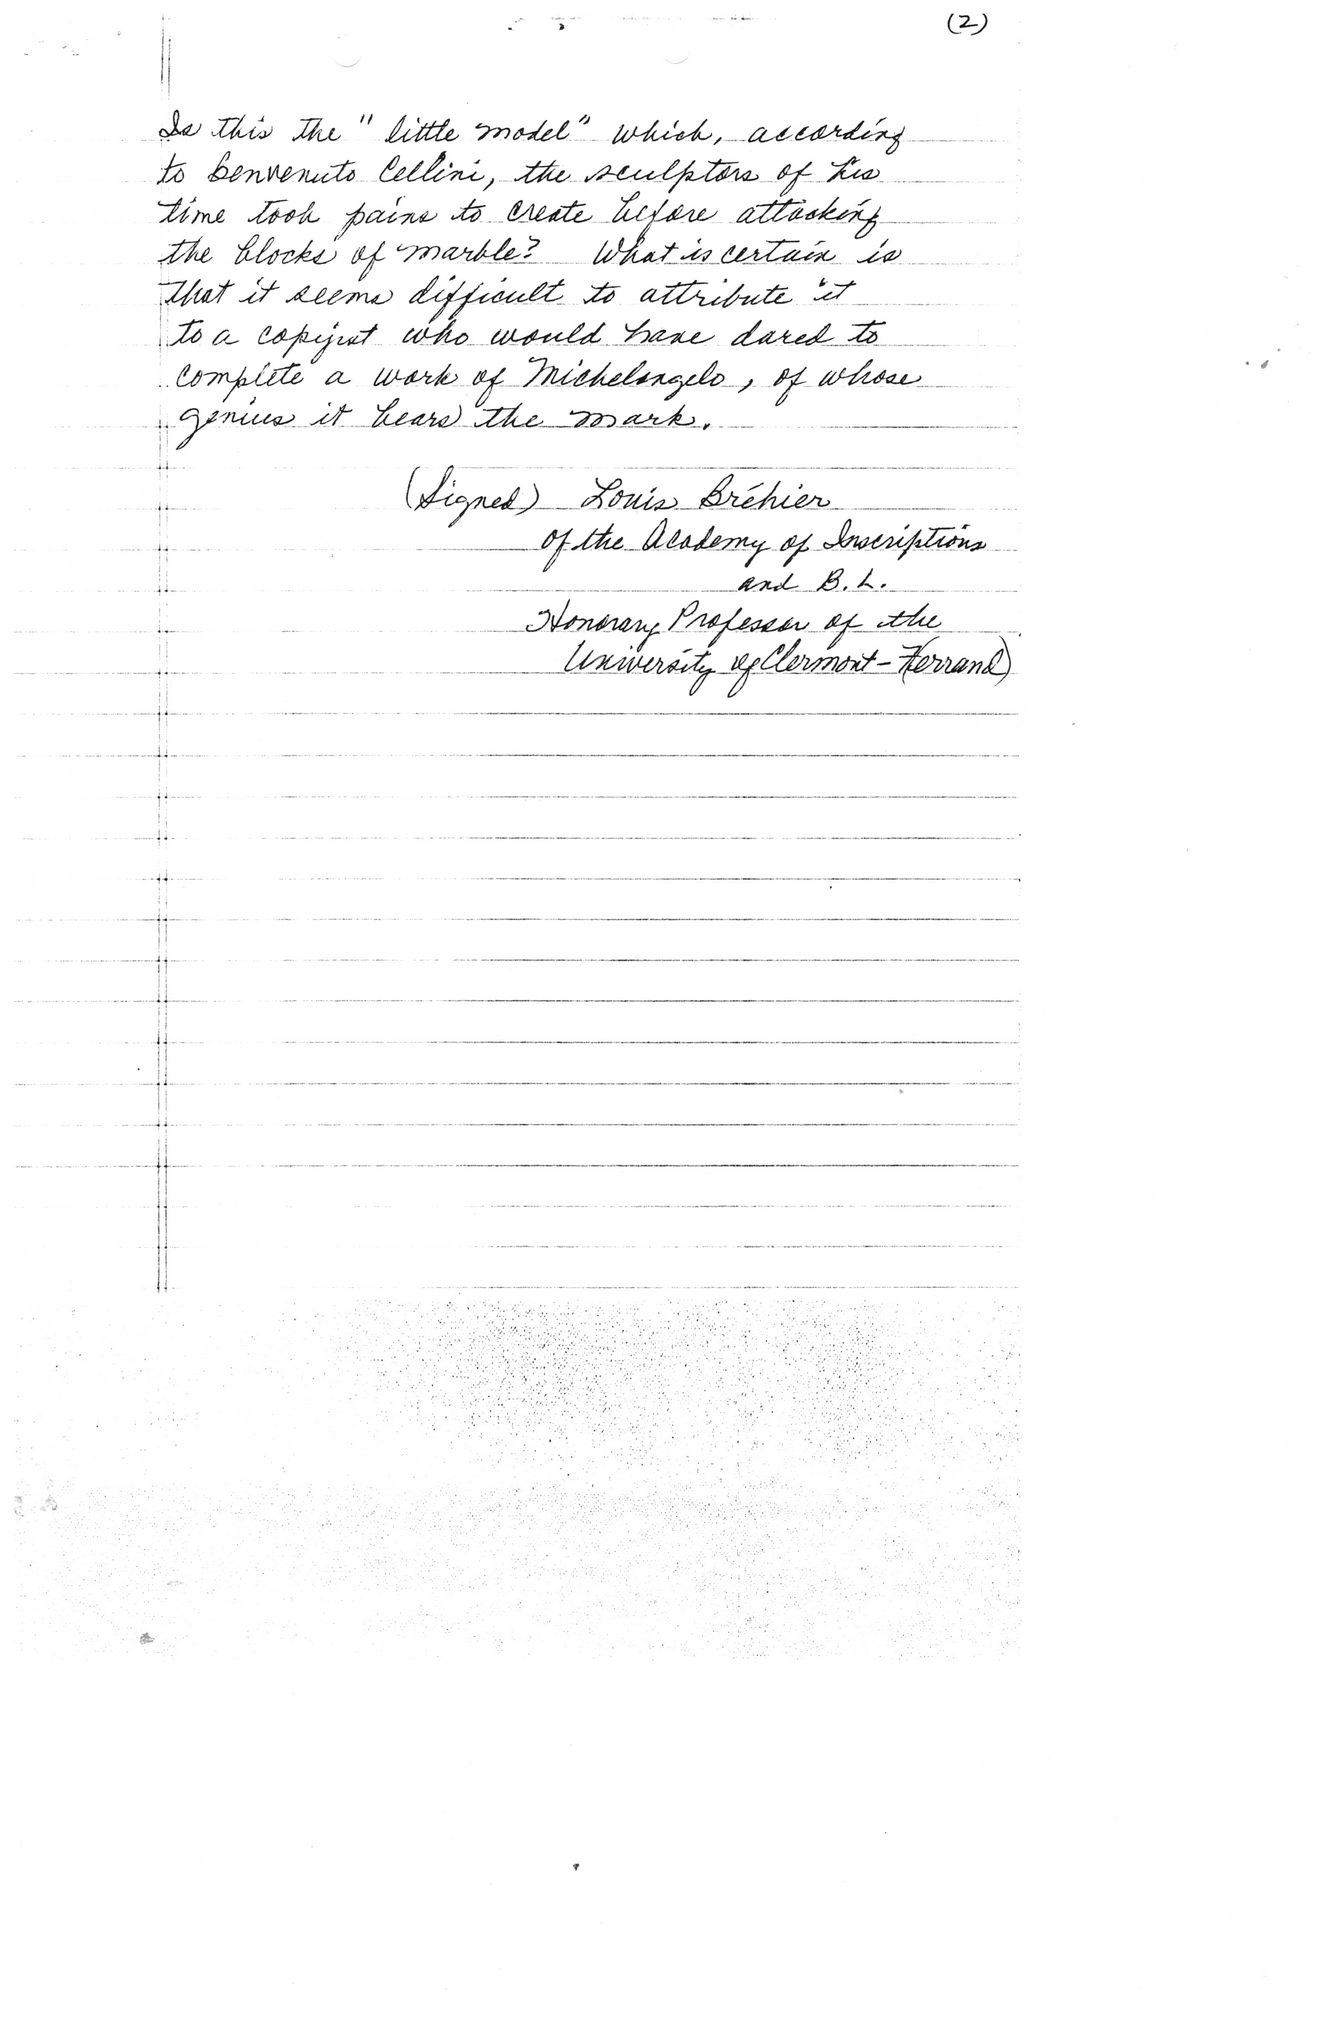 (2)
Is this the "little model" which, according
to Benvenuto Cellini, the sculptors of his
time took pains to create before attacking
the blocks of marble? What is certain is
that it seems difficult to attribute it
to a copyist who would have dared to
complete a work of Michelangelo, of whose
genius it bears the mark.
(Signed) Louis Bréhier
of the Academy of Inscriptions
and B.L.
Honorary Professor of the
University of Clermont-Ferrand)